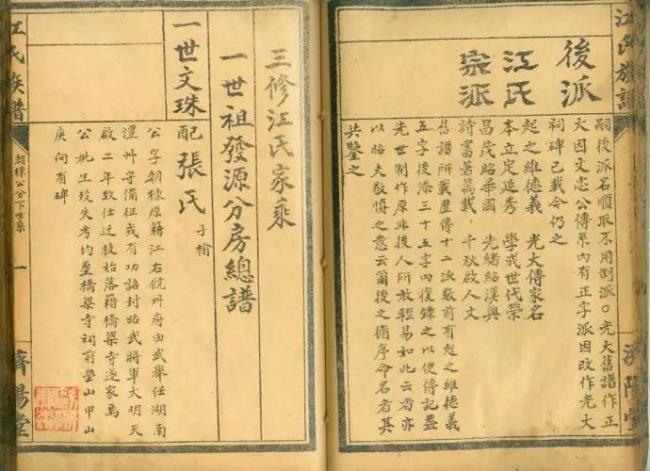 江氏族譜
濟陽堂
後派
江氏
宗派
嗣後派名順取不用倒派○光大舊譜作正
大因文忠公傳系內有正字派因改作光大
祠碑已載今仍之
起之維德義　光大傳家名
本立定延秀　學戒世代榮
昌茂昭華國　先緒紹漢興
詩書著萬載　千秋啟人文
舊譜所載歷傳十二派最前有起之維德義
五字後添三十五字四復錄之以便傳記蓋
先世制作原非後人所敢輕易如此云者亦
以昭夫敬慎之意云爾後之循序命名者其
共鑒之
三修江氏家乘
一世祖發源分房總譜
一世文珠
配張氏
子榆
公字朝棟原籍江右饒州府由武舉任湖南
澧州守備征戎有功誥封昭武將軍大明天
啟二年致仕迁移始落籍橋梁寺遂家焉
公妣生歿失考均塟橋梁寺祠前塋山甲山
庚向有碑
江氏族譜
朝棟公分下世系
一
濟陽堂